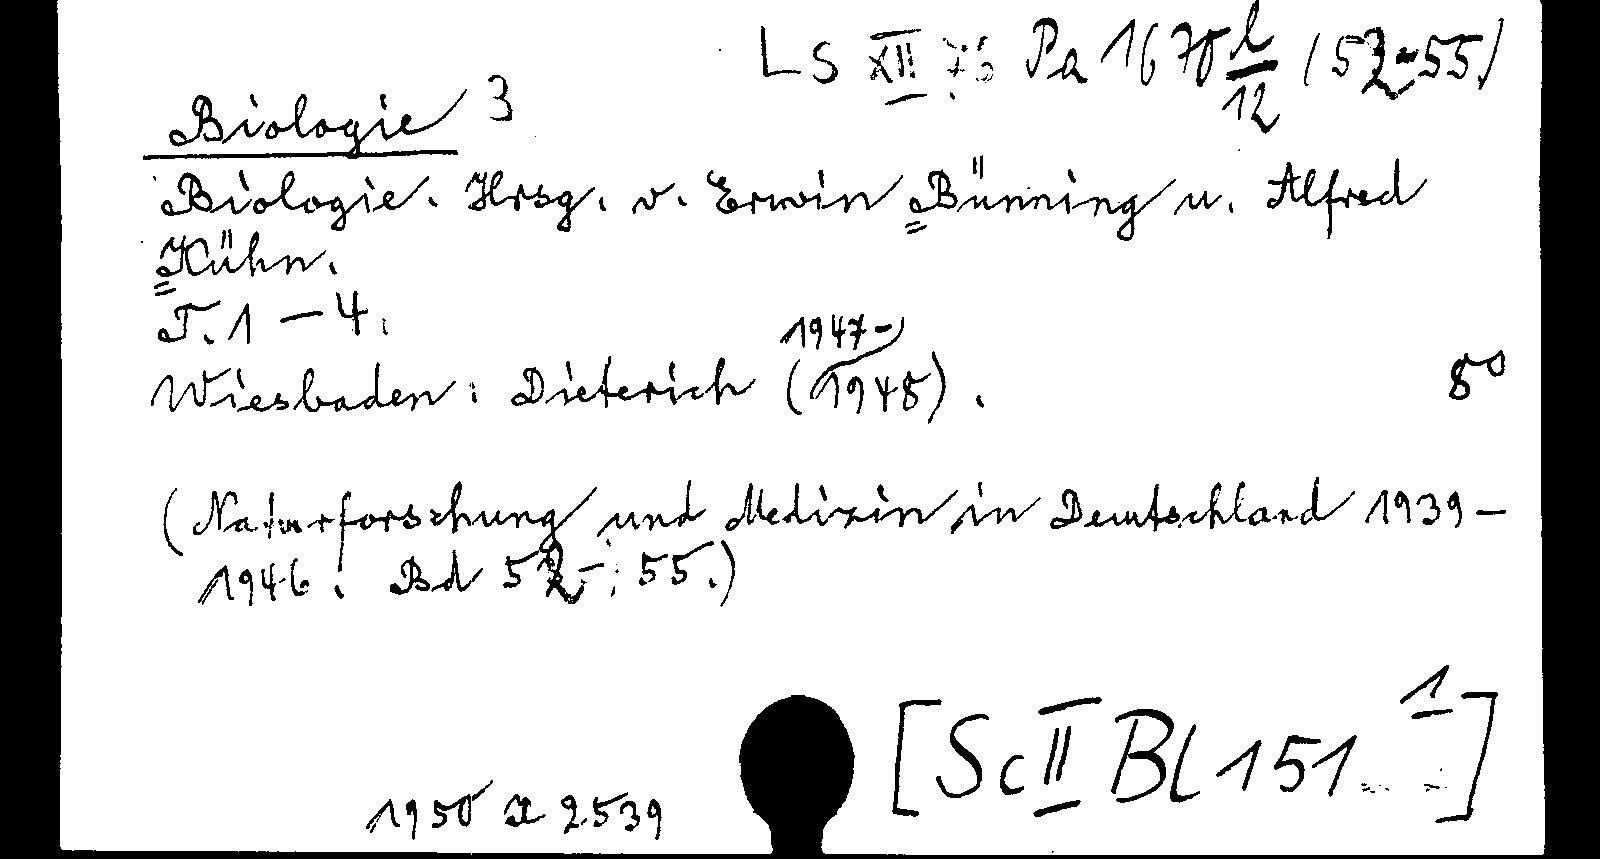 LS XII 75 Pa 1670 l/12 (52-55)
Biologie 3
Biologie. Hrsg. v. Erwin Bünning u. Alfred
Kühn.
T. 1 - 4.
1947-
Wiesbaden: Dieterich (1948). 8°
(Naturforschung und Medizin in Deutschland 1939-
1946. Bd 52-55.)
[Sc II Bl 151 1]
1950 x 2539